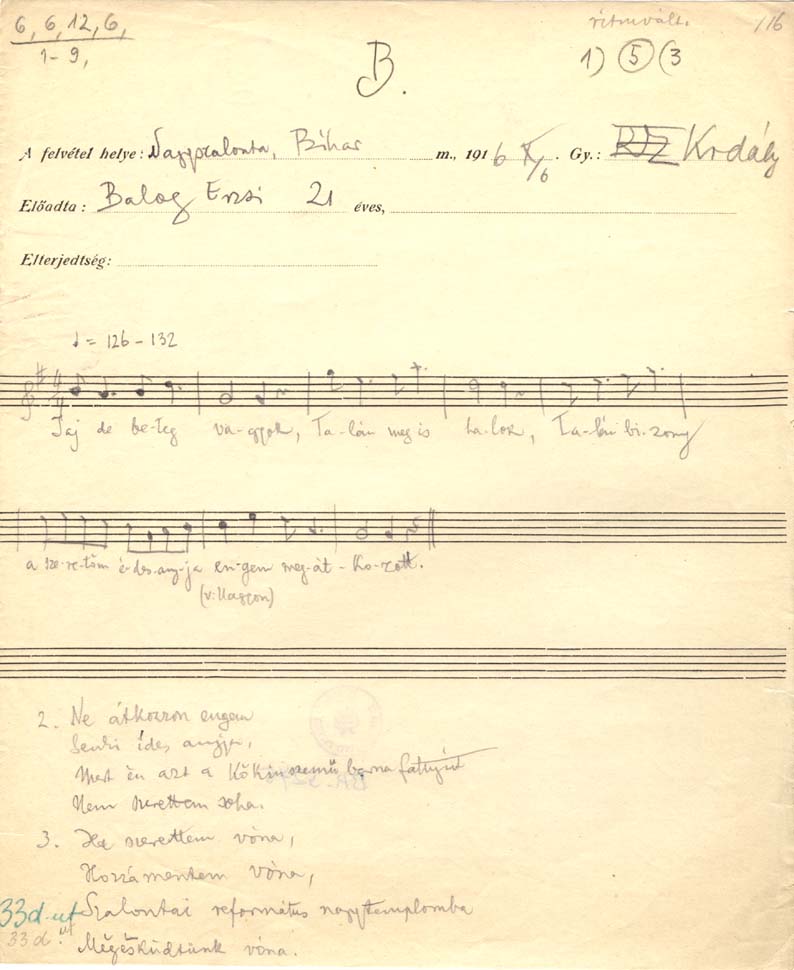 6, 6, 12, 6,
1-9,
ritmvált.
116
1) 5 (3
B.
A felvétel helye: Nagyszalonta, Bihar m., 1916 X/6. Gy.: Kodály
Előadta: Balog Erzsi 21 éves,
Elterjedtség:
♩ = 126 - 132
Jaj de be-teg va-gyok, Ta-lán meg is ha-lok, Ta-lán bi-zony
a sze-re-tőm é-des-any-ja en-gem meg-át-ko-zott.
2. Ne átkozzon engem
Senki ides anyja,
Mert èn azt a Kőkinszemű barna fattyút
Nem szerettem soha.
3. Ha szerettem vóna,
Hozzámentem vóna,
33d-ut Szalontai református nagytemplomba
33d. ut Mëgësküdtünk vóna.